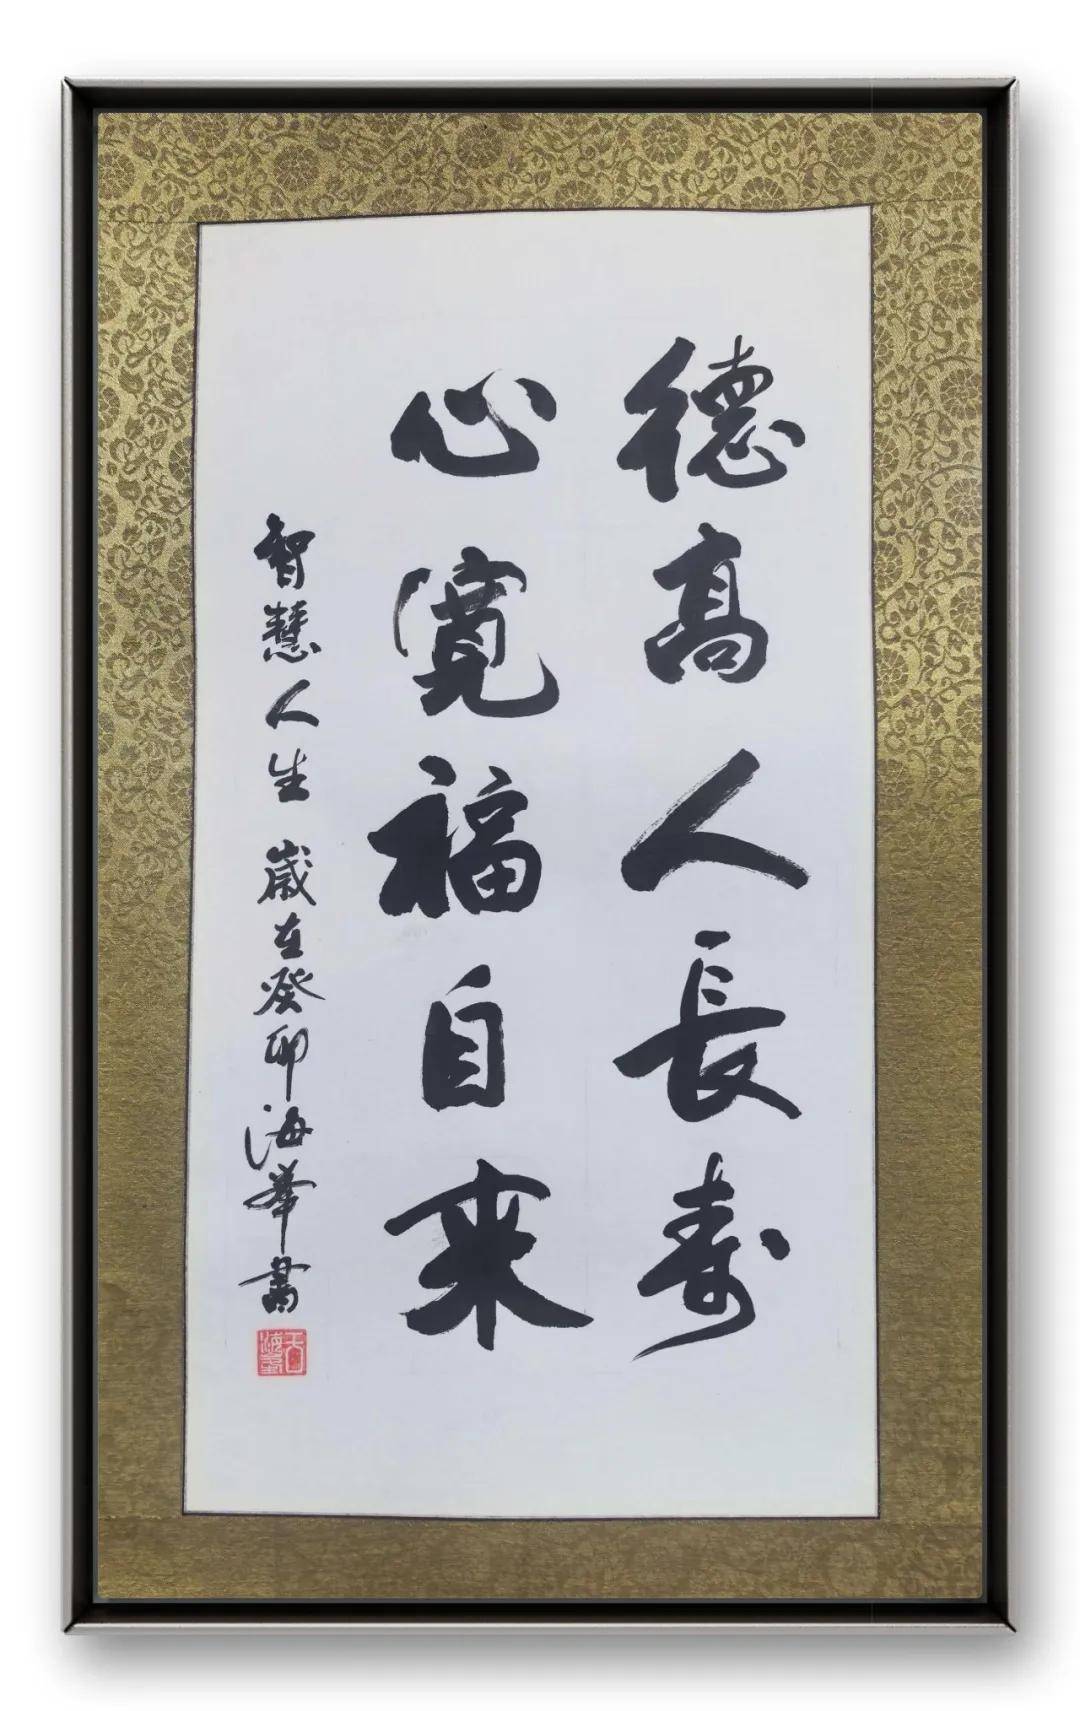 德高人長壽
心寬福自来
智慧人生 歲在癸卯海華書